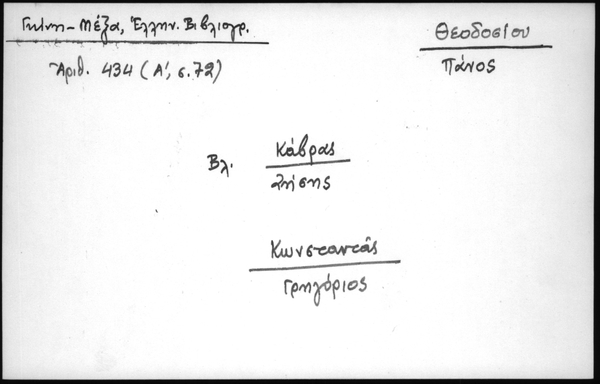 Γκίνη-Μέξα, Ἑλλην. Βιβλιογρ.
Ἀριθ. 434 (Α', σ. 72)
Θεοδοσίου
Πάνος
Βλ. Κάβρας
Ζήσης
Κωνσταντᾶς
Γρηγόριος